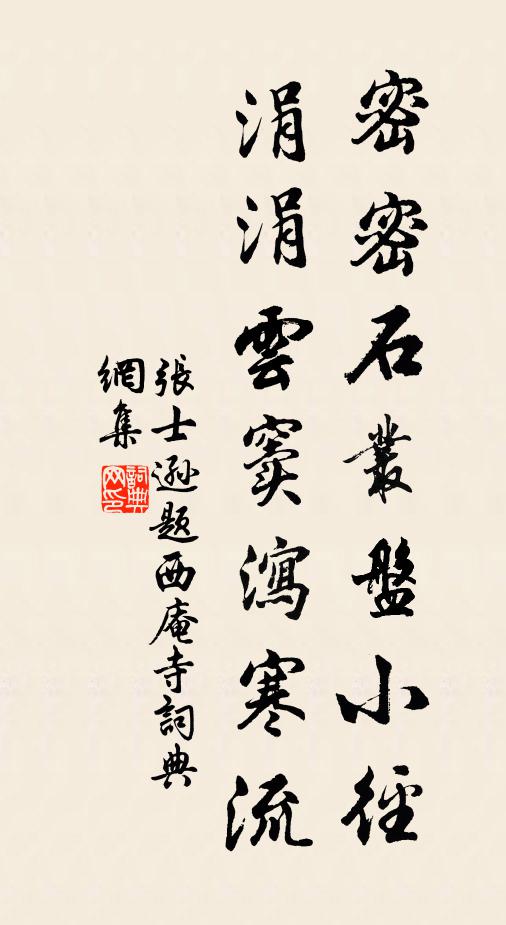 密密石叢盤小徑
涓涓雲竇瀉寒流
張士遜题西庵寺詞典
網集
詞典
网印